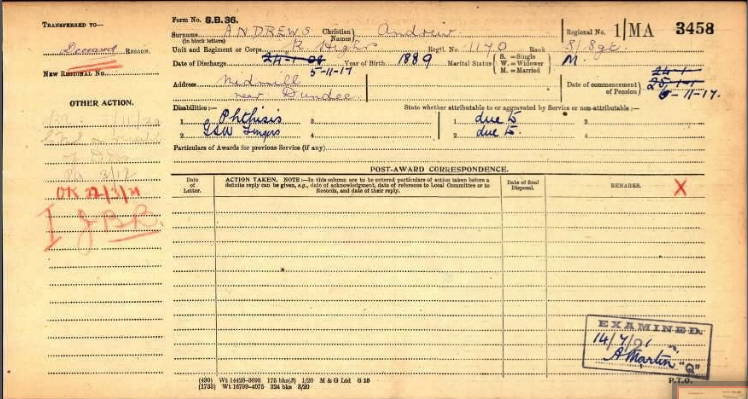 TRANSFERRED TO—
Deceased REGION.
NEW REGIONAL NO.
OTHER ACTION.
OK 22/3/21
I JBR.
Form No. S.B. 36.
Surname (in block letters) ANDREWS Christian Names} Andrew Regional No. 1/MA 3458
Unit and Regiment or Corps R Highrs Regtl. No. 1170 Rank S/Sgt.
Date of Discharge 24-1-08 Year of Birth 1889 Marital Status {S. = Single W. = Widower M. = Married} M.
5-11-17
Address Midmill near Dundee Date of commencement of Pension} 24-1- 25-1-1 6-11-17.
Disabilities:— State whether attributable to or aggravated by Service or non-attributable:—
1 Phthisis 3 1 due to 3
2 GSW Fingers 4 2 due to 4
Particulars of Awards for previous Service (if any)
POST-AWARD CORRESPONDENCE.
Date of Letter.
ACTION TAKEN. NOTE:—In this column are to be entered particulars of action taken before a definite reply can be given, e.g., date of acknowledgment, date of references to Local Committee or to Records, and date of their reply.
Date of final Disposal.
REMARKS. X
EXAMINED.
14/7/21
A Martin "Q"
P.T.O.
(480) Wt 14428—8698 175 bks(3) 1/20 M & G Ltd G 18
(1735) Wt 16799—4075 324 bks 8/20